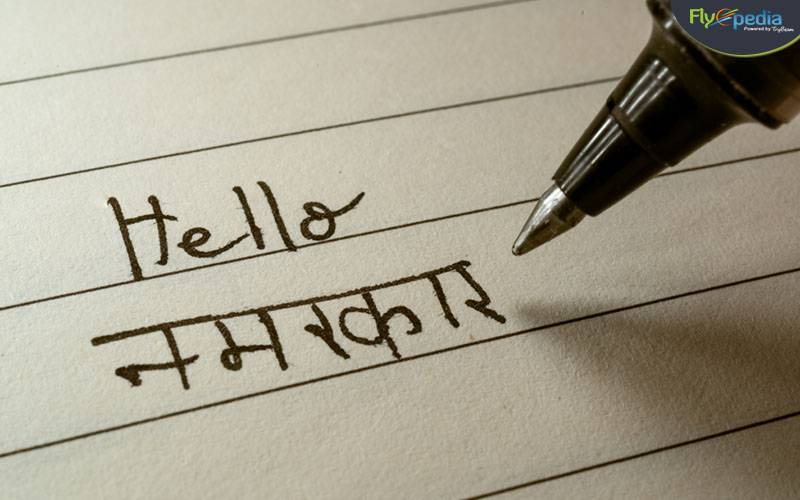 FlyOpedia
Powered by TryBeam
Hello
नमस्कार